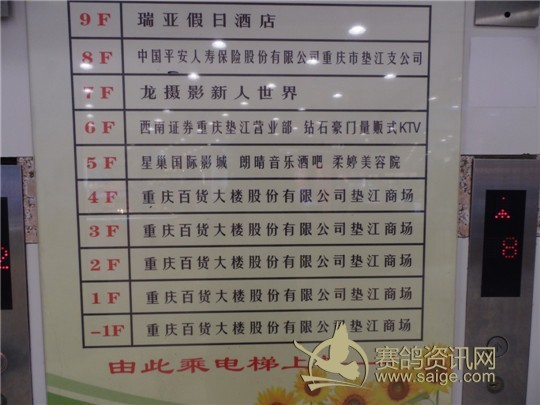 9F 瑞亚假日酒店
8F 中国平安人寿保险股份有限公司重庆市垫江支公司
7F 龙摄影新人世界
6F 西南证券重庆垫江营业部 钻石豪门量贩式KTV
5F 星巢国际影城 朗晴音乐酒吧 柔婷美容院
4F 重庆百货大楼股份有限公司垫江商场
3F 重庆百货大楼股份有限公司垫江商场
2F 重庆百货大楼股份有限公司垫江商场
1F 重庆百货大楼股份有限公司垫江商场
-1F 重庆百货大楼股份有限公司垫江商场
由此乘电梯上
8
2
赛鸽资讯网
www.saige.com